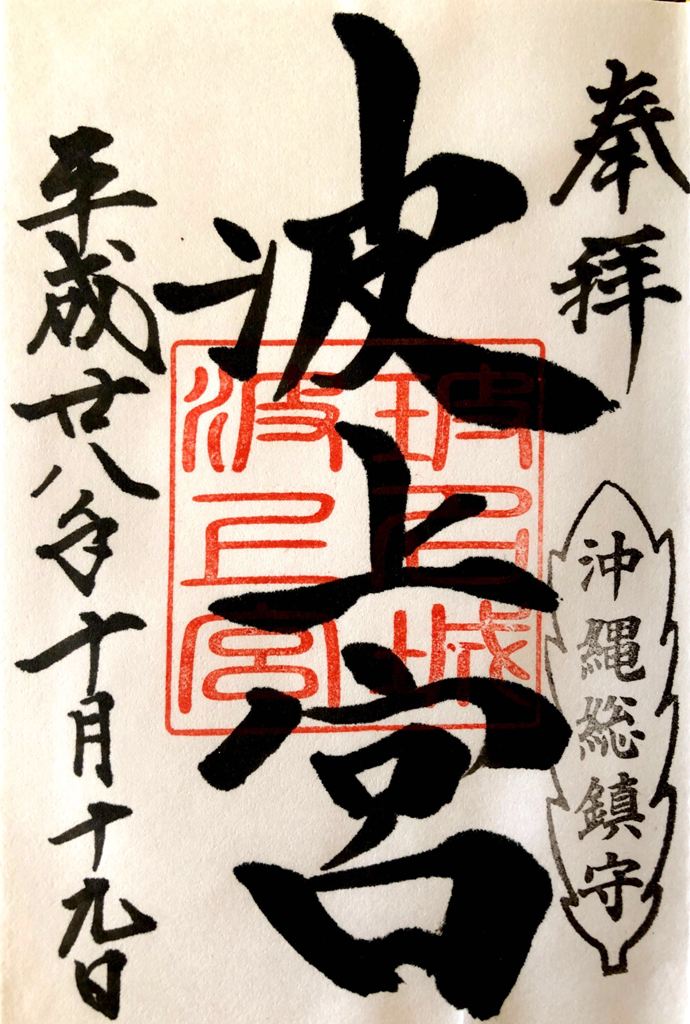 奉拝
沖縄総鎮守
波上宮
玻名城
波上宮
平成廿八年十月十九日